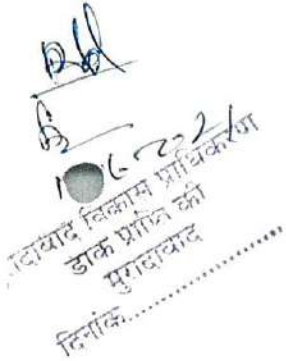 6-2021
दाबाद विकास प्राधिकरण
डाक प्राप्ति की
मुरादाबाद
दिनांक....................